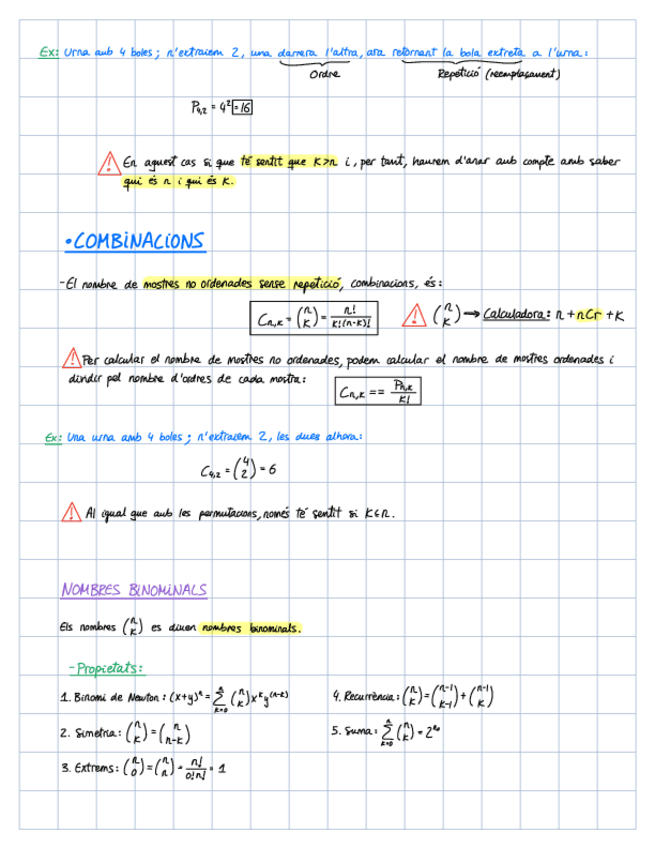 Ex: Urna amb 4 boles; n'extraiem 2, una darrera l'altra, ara retornant la bola extreta a l'urna:
Ordre Repetició (reemplaçament)
P₄,₂ = 4² = 16
En aquest cas si que té sentit que K>n i, per tant, haurem d'anar amb compte amb saber
qui és n i qui és K.
• COMBINACIONS
- El nombre de mostres no ordenades sense repetició, combinacions, és:
Cₙ,ₖ = (n K) = n! / K!(n-K)! (n K) → Calculadora: n + nCr + K
Per calcular el nombre de mostres no ordenades, podem calcular el nombre de mostres ordenades i
dividir pel nombre d'ordres de cada mostra: Cₙ,ₖ == Pₙ,ₖ / K!
Ex: Una urna amb 4 boles; n'extraiem 2, les dues alhora:
C₄,₂ = (4 2) = 6
Al igual que amb les permutacions, només té sentit si K≤n.
NOMBRES BINOMINALS
Els nombres (n K) es diuen nombres binominals.
- Propietats:
1. Binomi de Newton: (x+y)ⁿ = Σ K=0 n (n K) xᴷ y⁽ⁿ⁻ᴷ⁾
2. Simetria: (n K) = (n n-K)
3. Extrems: (n 0) = (n n) = n! / 0!n! = 1
4. Recurrència: (n K) = (n-1 K-1) + (n-1 K)
5. Suma: Σ K=0 n (n K) = 2ⁿ